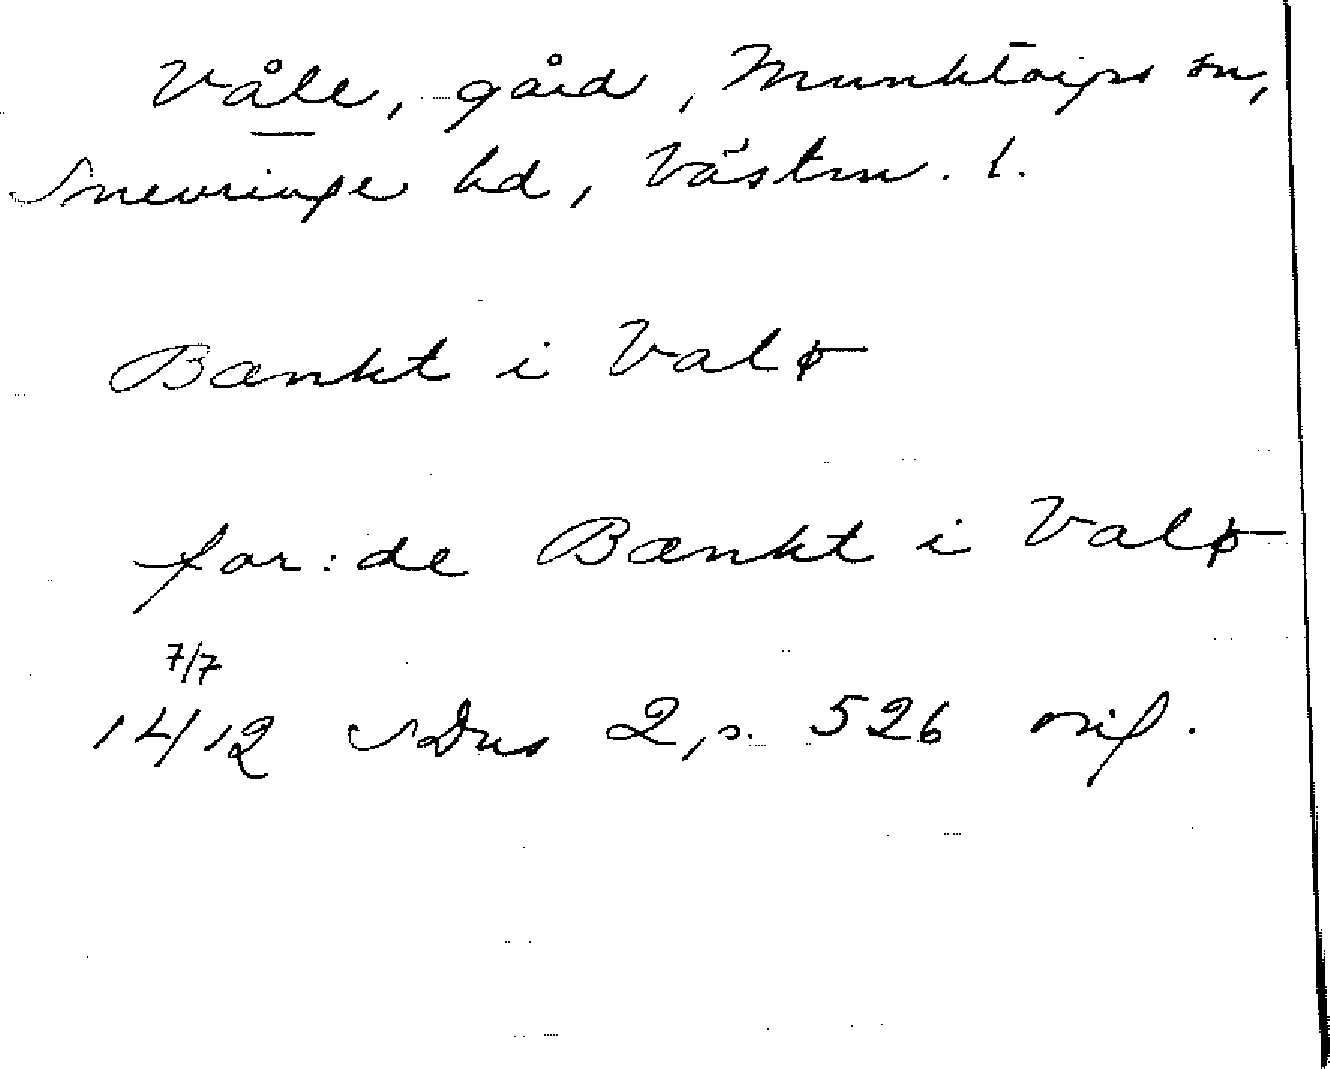 Våle, gård, Munktorps sn,
Snevringe hd, Västm. l.
Bænkt i Valø
for: de Bænkt i Valø
7/7
1412 SDns 2, s. 526 orig.